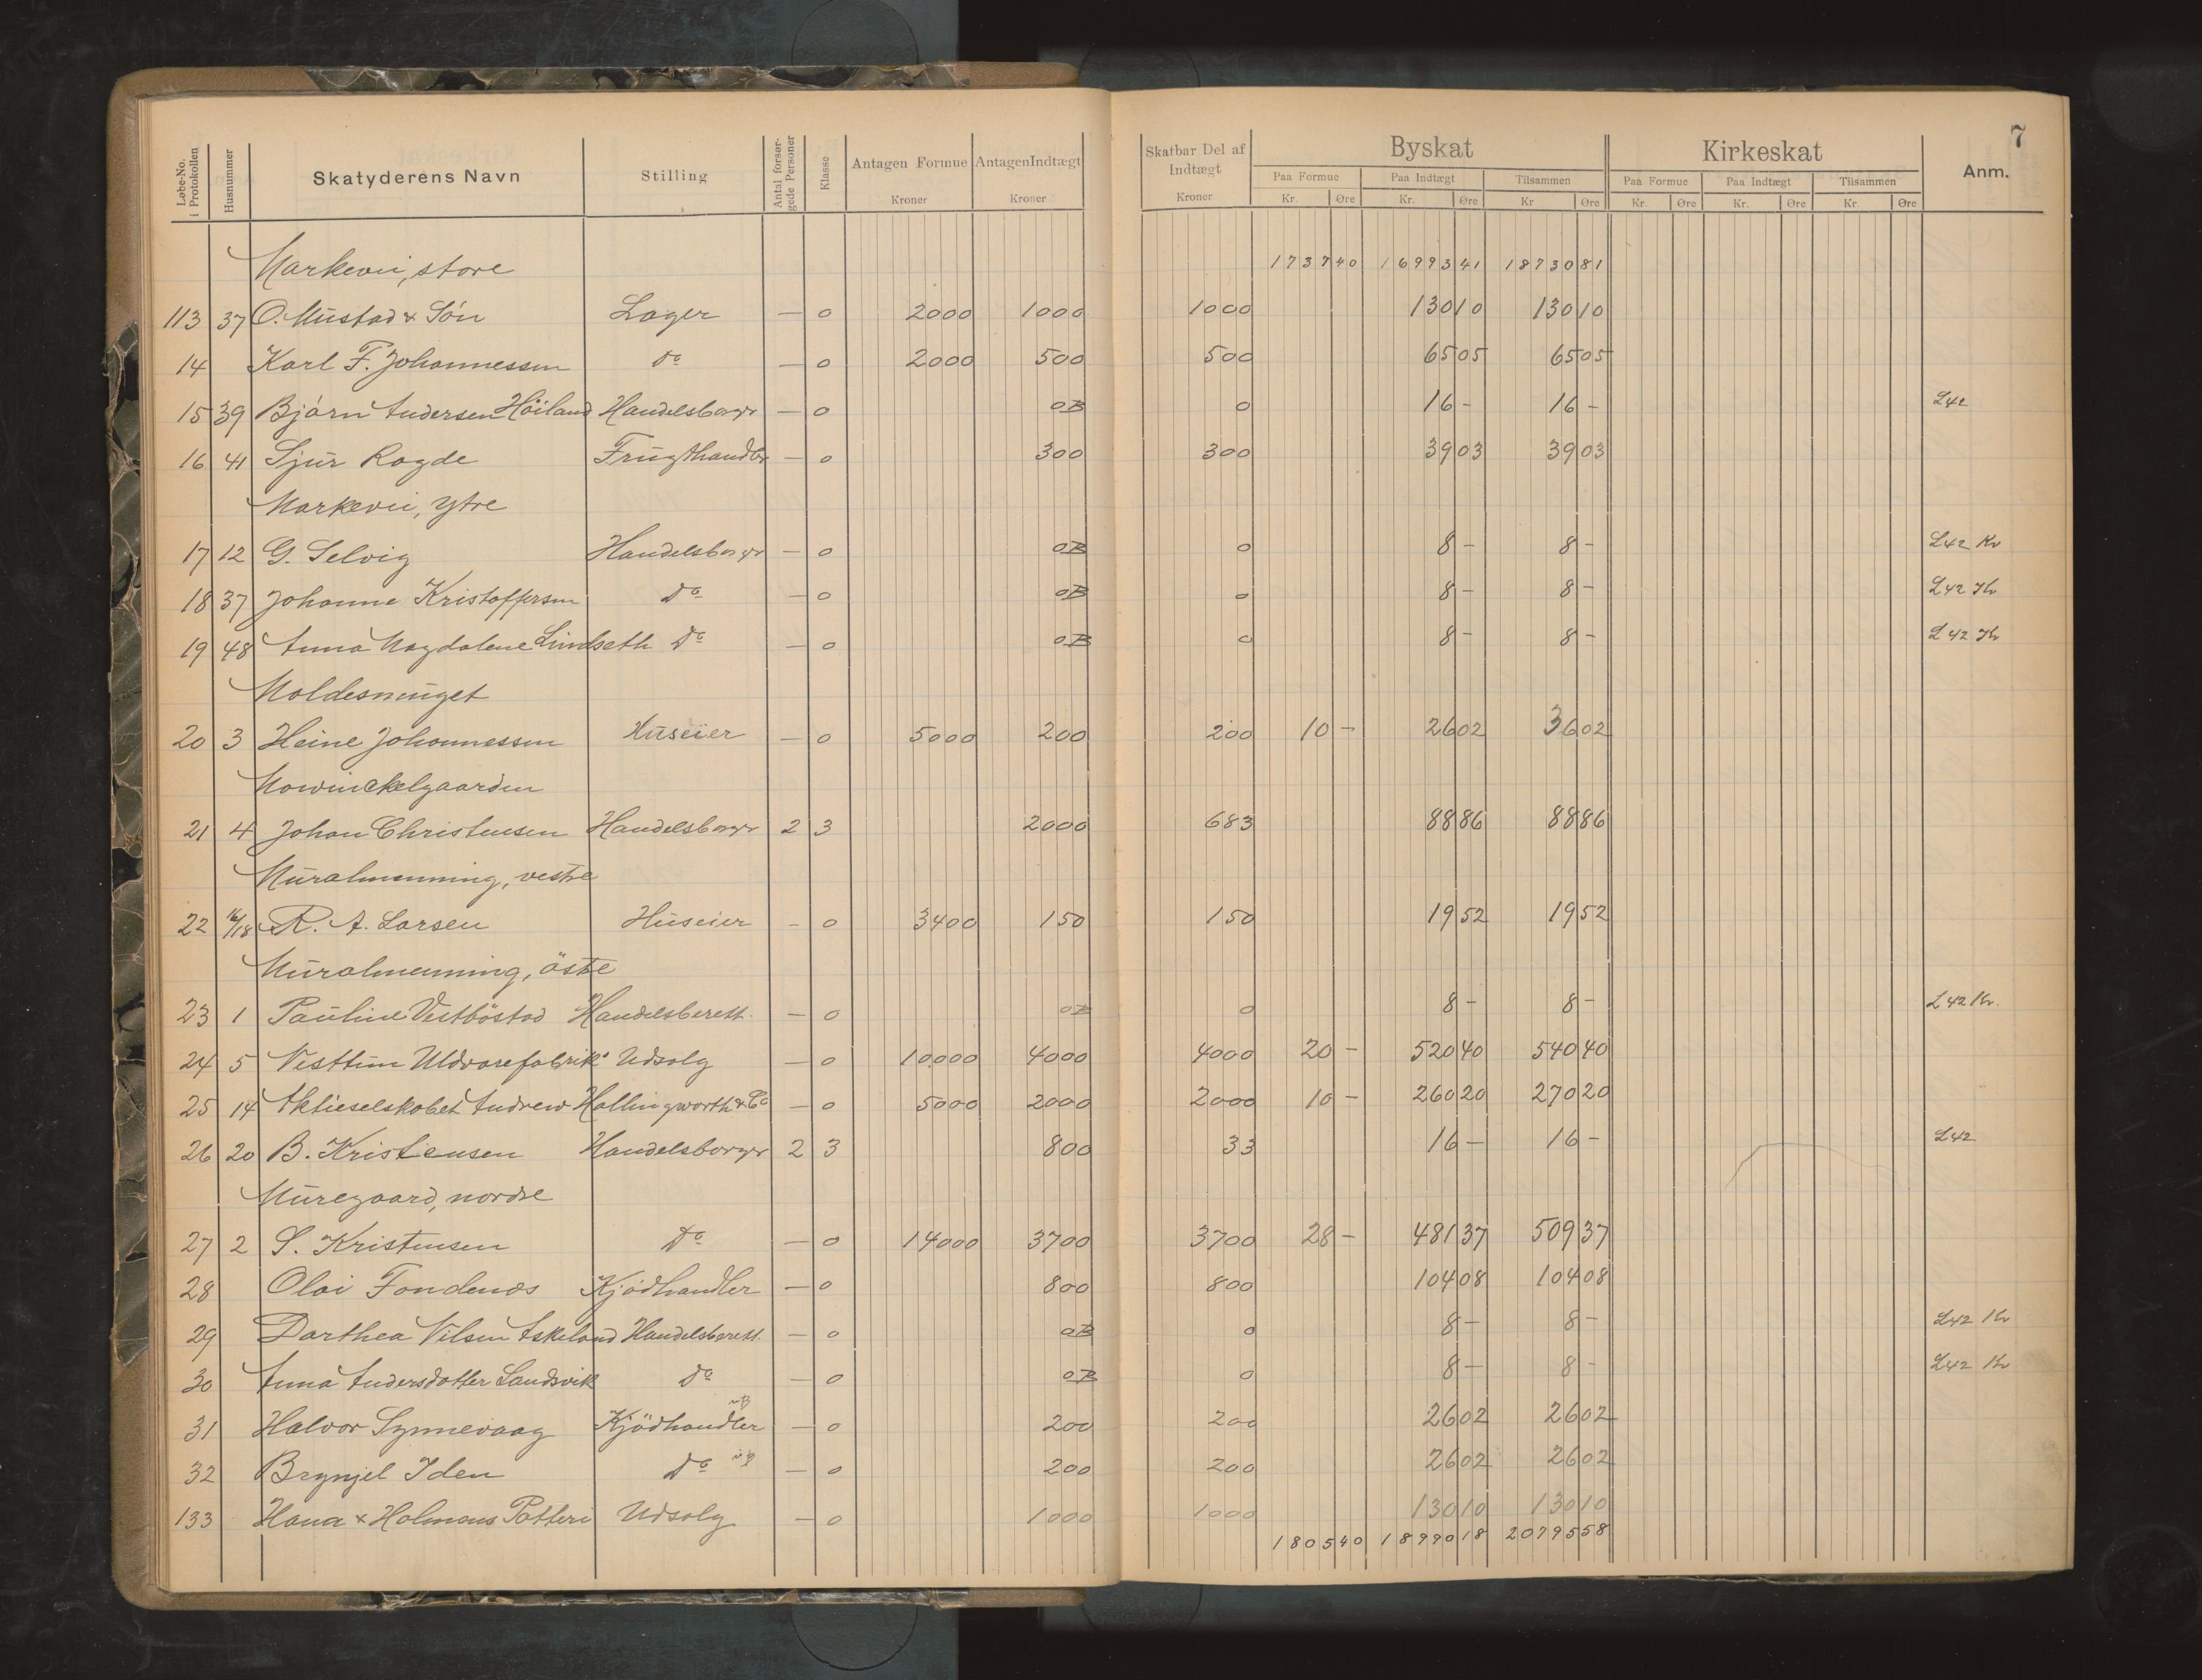 7
Løbe-No. i Protokollen | Husnummer | Skatyderens Navn | Stilling | Antal forsørgede Personer | Klasse | Antagen Formue Kroner | Antagen Indtægt Kroner | Skatbar Del af Indtægt Kroner | Byskat | Kirkeskat | Anm.
Paa Formue Kr. Øre | Paa Indtægt Kr. Øre | Tilsammen Kr Øre | Paa Formue Kr. Øre | Paa Indtægt Kr. Øre | Tilsammen Kr. Øre
Markevei, store | 1737 40 | 16993 41 | 18730 81
113 | 37 | O. Mustad & Søn | Lager | — | 0 | 2000 | 1000 | 1000 | 130 10 | 130 10
14 | Karl F. Johannessen | do | — | 0 | 2000 | 500 | 500 | 65 05 | 65 05
15 | 39 | Bjørn Andersen Höiland | Handelsborger | — | 0 | 0B | 0 | 16 – | 16 – | L42
16 | 41 | Sjur Ragde | Frugthandler | — | 0 | 300 | 300 | 39 03 | 39 03
Markevei, Ytre
17 | 12 | G. Selvig | Handelsborger | — | 0 | 0B | 0 | 8 – | 8 – | L42 Kv
18 | 37 | Johanne Kristoffersen | Do | — | 0 | 0B | 0 | 8 – | 8 – | L42 Kv
19 | 48 | Anna Magdalene Lindseth | Do | — | 0 | 0B | 0 | 8 – | 8 – | L42 Kv
Moldesmuget
20 | 3 | Heine Johannessen | Huseier | — | 0 | 5000 | 200 | 200 | 10 – | 26 02 | 36 02
Mowinckelgaarden
21 | 4 | Johan Christensen | Handelsborger | 2 | 3 | 2000 | 683 | 88 86 | 88 86
Muralmenning, vestre
22 | 16/18 | R. A. Larsen | Huseier | – | 0 | 3400 | 150 | 150 | 19 52 | 19 52
Muralmenning, östre
23 | 1 | Pauline Vestböstad | Handelsberett. | — | 0 | 0B | 0 | 8 – | 8 – | L42 Kv.
24 | 5 | Nesttun Uldvarefabrik | Udsalg | — | 0 | 10.000 | 4000 | 4000 | 20 – | 520 40 | 540 40
25 | 14 | Aktieselskabet Andrew Hollingworth & Co | — | 0 | 5000 | 2000 | 2000 | 10 – | 260 20 | 270 20
26 | 20 | B. Kristensen | Handelsborger | 2 | 3 | 800 | 33 | 16 – | 16 – | L42
Muregaard, nordre
27 | 2 | S. Kristensen | Do | — | 0 | 14000 | 3700 | 3700 | 28 – | 481 37 | 509 37
28 | Olai Fondenæs | Kjødhandler | — | 0 | 800 | 800 | 104 08 | 104 08
29 | Dorthea Nilsen Askeland | Handelsberett. | — | 0 | 0B | 0 | 8 – | 8 – | L42 Kv
30 | Anna Andersdatter Sandsvik | Do | — | 0 | 0B | 0 | 8 – | 8 – | L42 Kv
31 | Halvor Synnevaag | Kjödhandler | — | 0 | 200 | 200 | 26 02 | 26 02
32 | Brynjel Iden | Do | — | 0 | 200 | 200 | 26 02 | 26 02
133 | Hana & Holmens Potteri | Udsalg | — | 0 | 1000 | 1000 | 130 10 | 130 10
1805 40 | 18990 18 | 20795 58